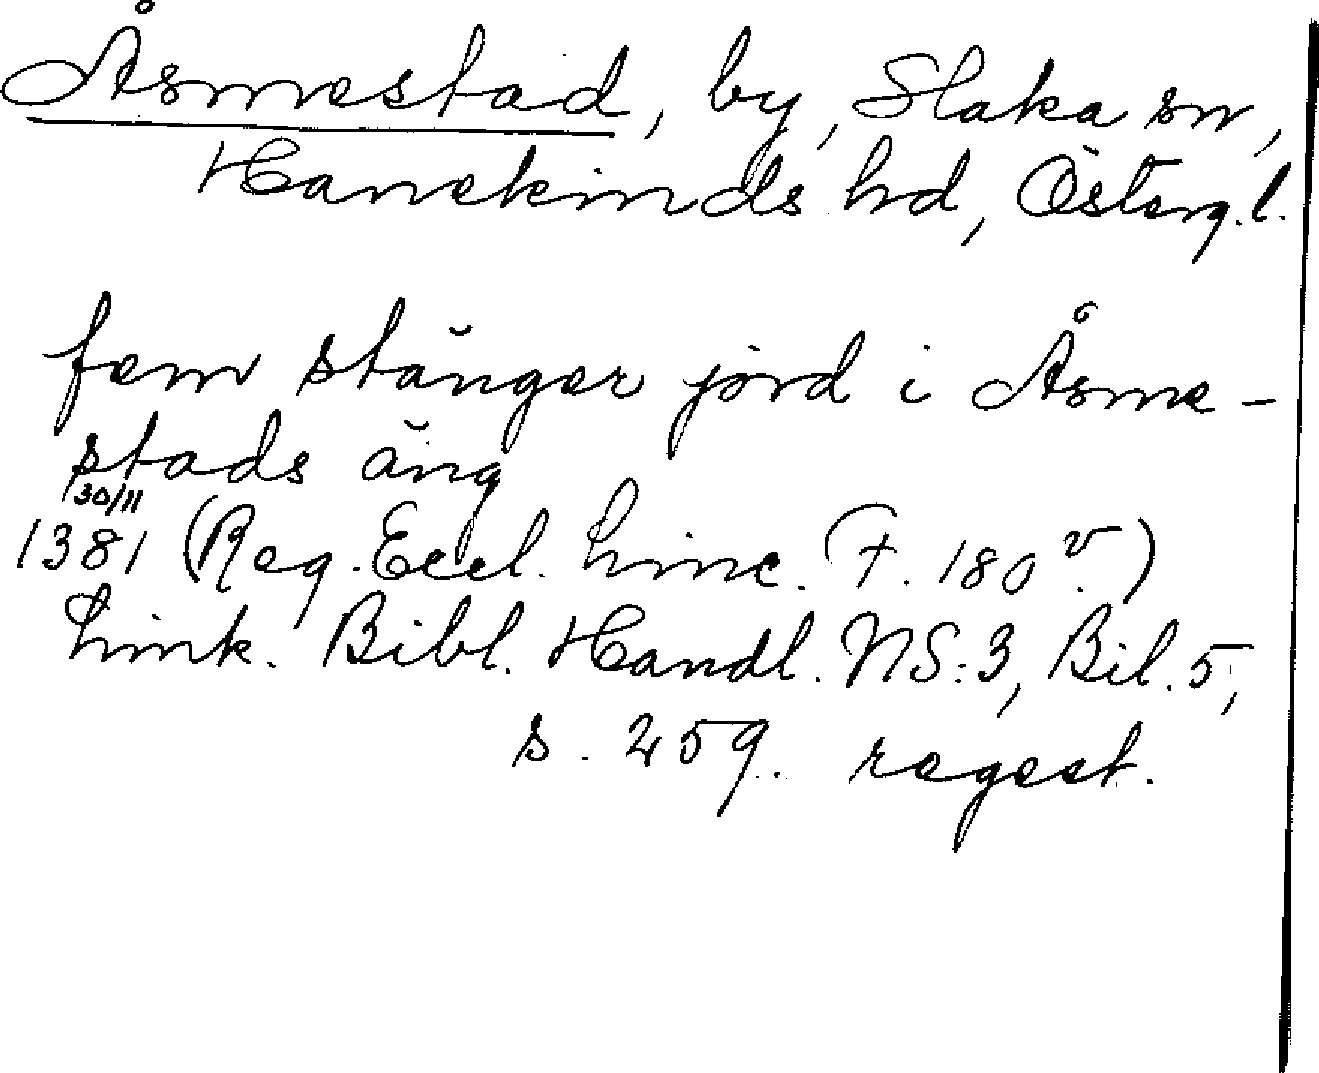 Åsmestad, by, Slaka sn,
Hanekinds hd, Österg.l.
fem stänger jord i Åsme-
stads äng
30/11
1381 (Reg. Eccl. Linc. F. 180 v.)
Link. Bibl. Handl. NS:3, Bil. 5,
s. 259. regest.